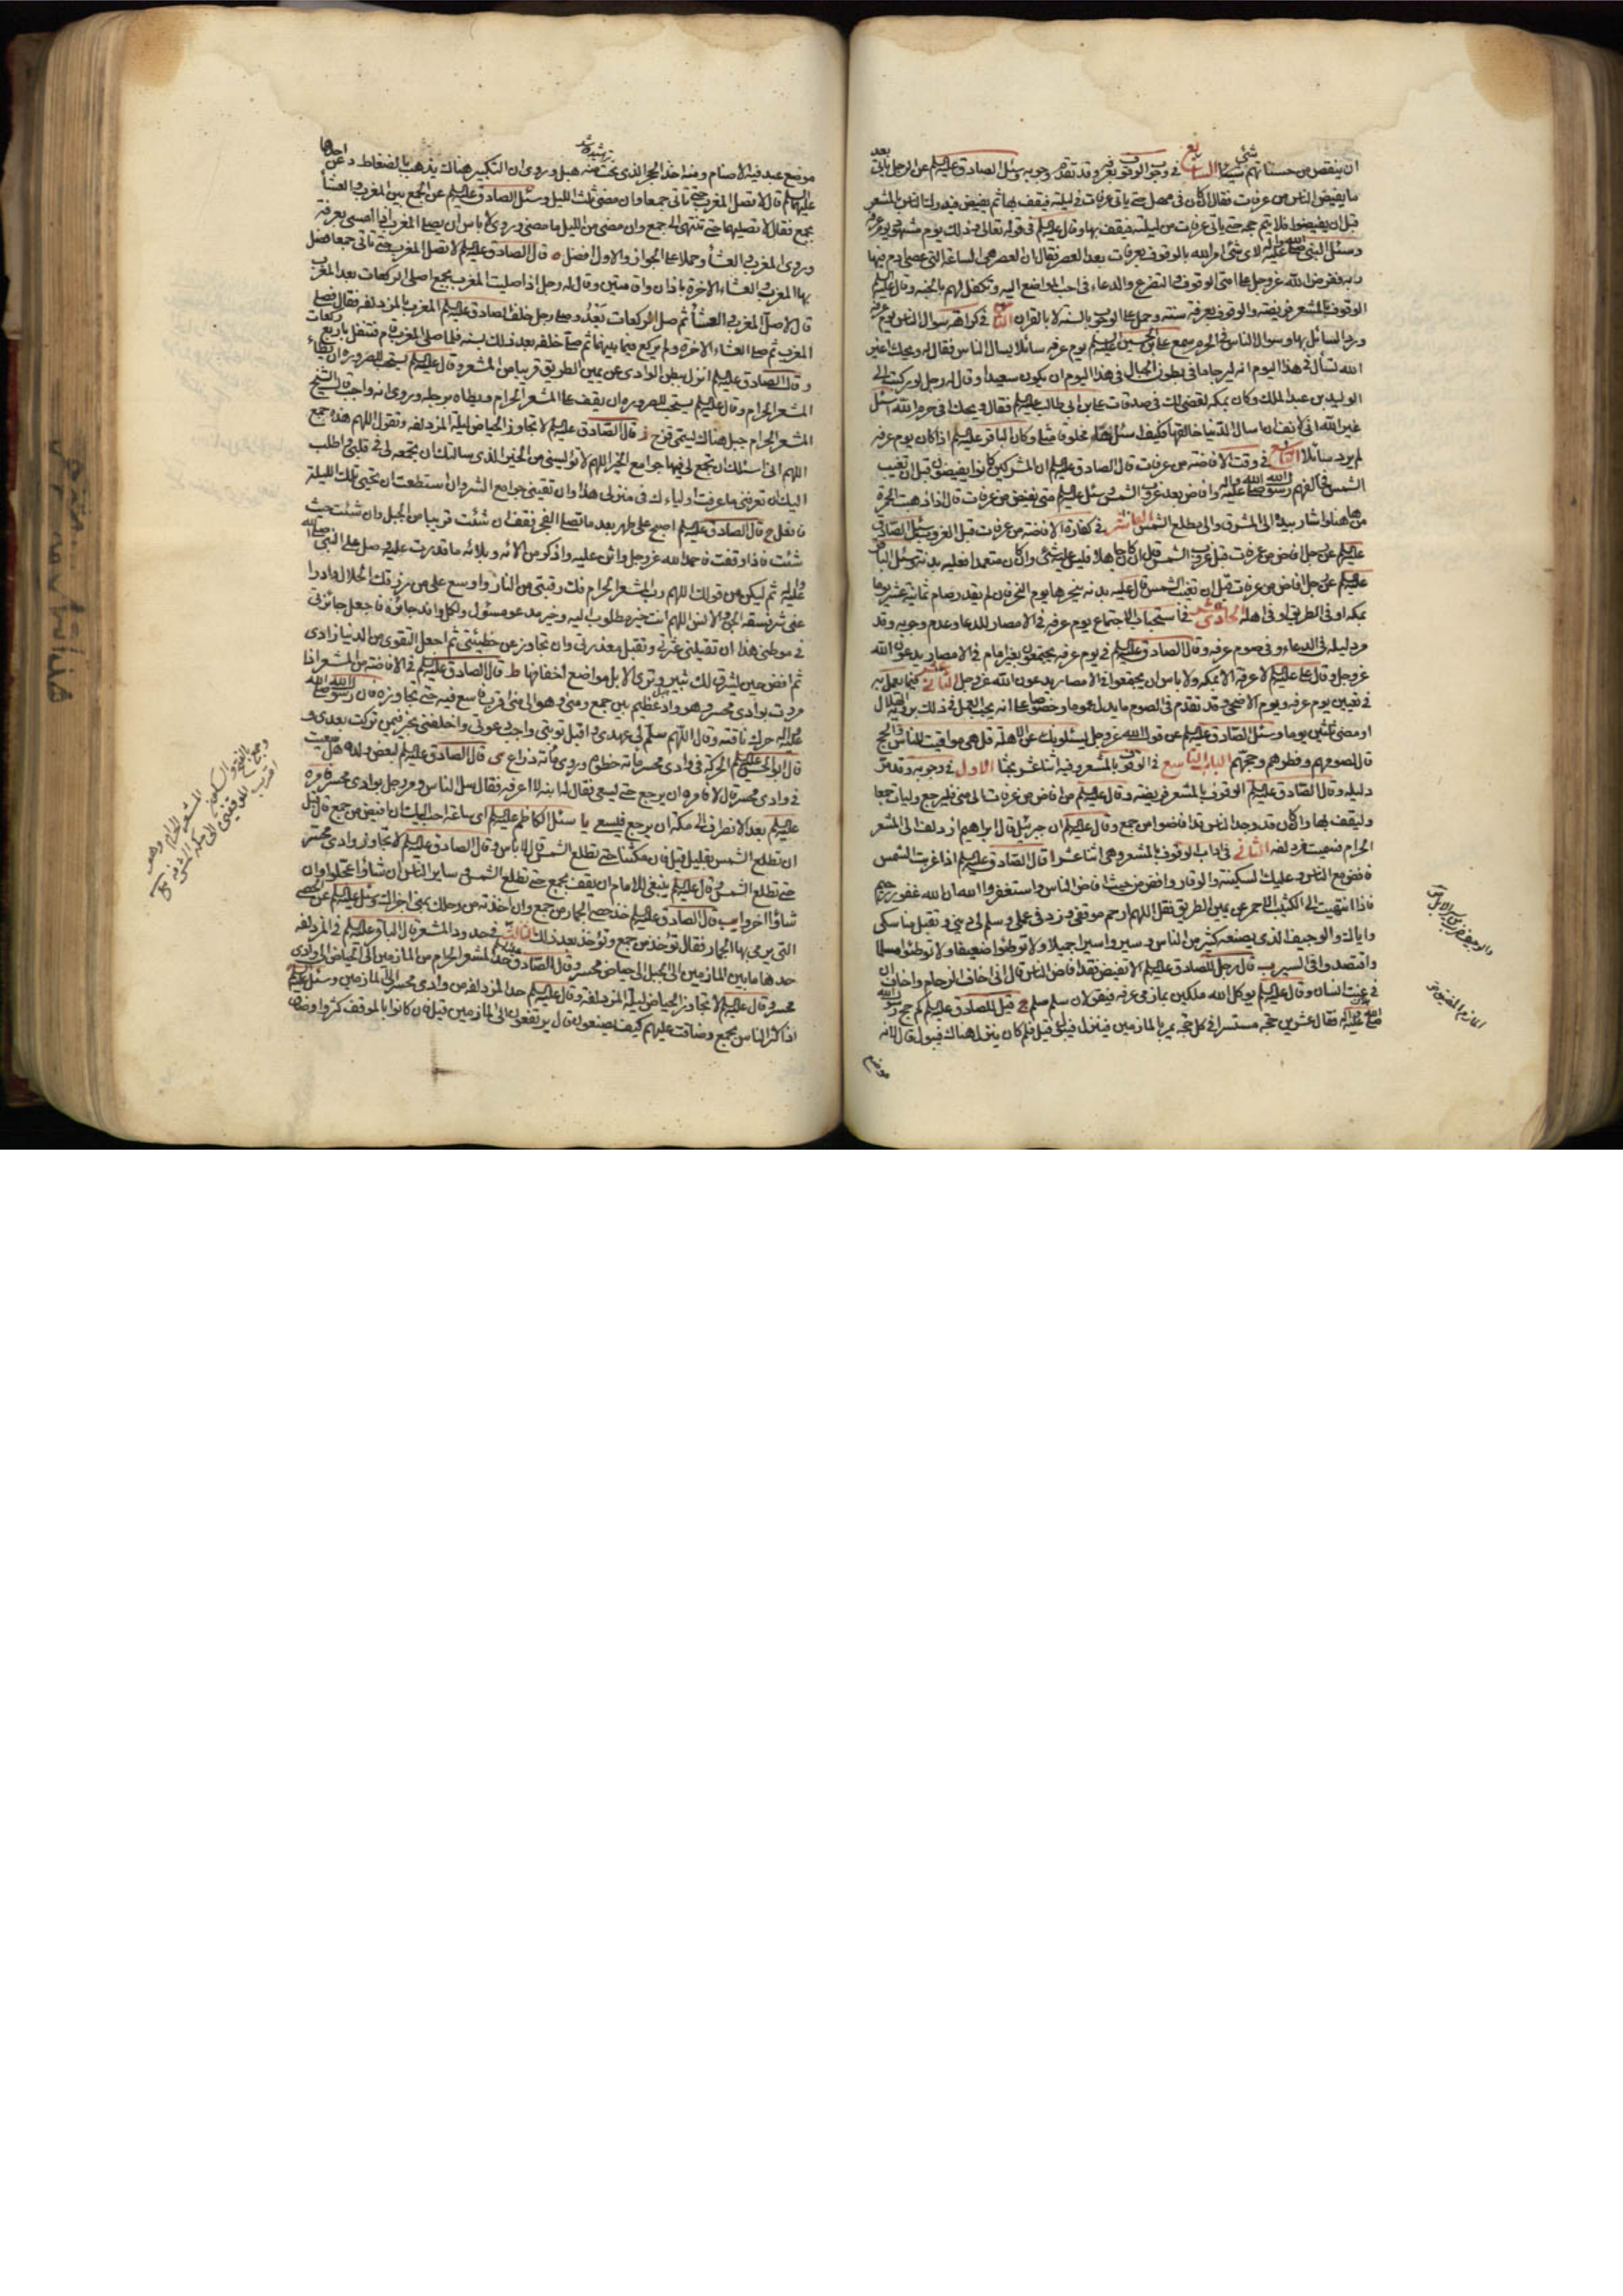 ان ينقص من حسناتهم شيئا السابع في وجوب الوقوف بعرفة وقد تقدم وجوبه وسئل الصادق عليه السلم عن الرجل ياتي بعد
ما يفيض الناس من عرفات فقال ان كان في مهل حتى ياتي عرفات في ليلته فيقف بها ثم يفيض فيدرك الناس بالمشعر
قبل ان يفيضوا فلا يتم حجه حتى ياتي عرفات من ليلته فيقف بها وقال عليه السلم في قوله تعالى وذلك يوم مشهود يوم عرفة
وسئل النبي صلى الله عليه واله لاي شئ امر الله بالوقوف بعرفات بعد العصر فقال ان العصر هي الساعة التي عصى ادم فيها
ربه ففرض الله عز وجل على امتي الوقوف والتضرع والدعاء في احب المواضع اليه وتكفل لهم بالجنة وقال عليه السلم
الوقوف بالمشعر فريضة والوقوف بعرفة سنة وحمل على الوجوب بالسنة لا بالقران الثامن في كراهة سوال الناس يوم عرفة
ورد السائل بها وسوال الناس في الحرم سمع علي بن الحسين عليه السلم يوم عرفة سائلا يسال الناس فقال له ويحك اغير
الله تسأل في هذا اليوم انه ليرجا ما في بطون الجبال في هذا اليوم ان يكون سعيدا وقال له رجل لو ركبت الى
الوليد بن عبد الملك وكان بمكة لقضى لك في صدقات علي بن ابي طالب عليه السلم فقال ويحك افي حرم الله اسئل
غير الله اني لانف ان اسال الدنيا خالقها فكيف اسئلها مخلوقا مثلي وكان الباقر عليه السلم اذا كان يوم عرفة
لم يرد سائلا التاسع في وقت الافاضة من عرفات قال الصادق عليه السلم ان المشركين كانوا يفيضون قبل ان تغيب
الشمس فخالفهم رسول الله صلى الله عليه واله وافاض بعد غروب الشمس وسئل عليه السلم متى نفيض من عرفات قال اذا ذهبت الحمرة
من هاهنا واشار بيده الى المشرق والى مطلع الشمس العاشر في كفارة الافاضة من عرفات قبل الغروب سئل الصادق
عليه السلم عن رجل افاض من عرفات قبل غروب الشمس قال ان كان جاهلا فليس عليه شئ وان كان متعمدا فعليه بدنة وسئل الباقر
عليه السلم عن رجل افاض من عرفات قبل ان تغيب الشمس قال عليه بدنة ينحرها يوم النحر فان لم يقدر صام ثمانية عشر يوما
بمكة او في الطريق او في اهله الحادي عشر في استحباب الاجتماع يوم عرفة في الامصار للدعاء وعدم وجوبه وقد
مر دليله في الدعاء وفي صوم عرفة وقال الصادق عليه السلم في يوم عرفة يجتمعون بغير امام في الامصار يدعون الله
عز وجل وقال علي عليه السلم لا عرفة الا بمكة ولا باس ان يجتمعوا في الامصار يدعون الله عز وجل الثاني عشر فيما يعمل به
في تعيين يوم عرفة ويوم الاضحى وقد تقدم في الصوم ما يدل عموما وخصوصا على انه يجب العمل في ذلك برؤية الهلال
او مضي ثلثين يوما وسئل الصادق عليه السلم عن قول الله عز وجل يسئلونك عن الاهلة قل هي مواقيت للناس والحج
قال لصومهم وفطرهم وحجهم الباب التاسع في الوقوف بالمشعر وفيه اثنا عشر بحثا الاول في وجوبه وقد مر
دليله وقال الصادق عليه السلم الوقوف بالمشعر فريضة وقال عليه السلم من افاض من عرفات الى منى فليرجع وليات جمعا
وليقف بها وان كان قد وجد الناس قد افاضوا من جمع وقال عليه السلم ان جبرئيل قال لابراهيم ازدلف الى المشعر
الحرام فسميت مزدلفة الثاني في اداب الوقوف بالمشعر وهي اثنا عشر ا قال الصادق عليه السلم اذا غربت الشمس
فافض مع الناس وعليك السكينة والوقار وافض من حيث افاض الناس واستغفروا الله ان الله غفور رحيم
فاذا انتهيت الى الكثيب الاحمر عن يمين الطريق فقل اللهم ارحم موقفي وزد في عملي وسلم لي ديني وتقبل مناسكي
واياك والوجيف الذي يصنعه كثير من الناس وسيروا سيرا جميلا ولا توطئوا ضعيفا ولا توطئوا مسلما
واقتصدوا في السير ب قال رجل للصادق عليه السلم الا تفيض فقد افاض الناس قال اني اخاف الزحام واخاف ان اشرك
في عنت انسان وقال عليه السلم يوكل الله ملكين بمازمي عرفة فيقولان سلم سلم ج قيل للصادق عليه السلم كم حج رسول الله
صلى الله عليه واله فقال عشرين حجة مستسرا في كل حجة يمر بالمازمين فينزل فيبول قيل فلم كان ينزل هناك فيبول قال لانه
موضع
موضع عبد فيه الاصنام ومنه اخذ الحجر الذي نحت منه هبل وروى ان التكبير هناك يذهب بالضغاط د عن احدهما
عليهما السلم قال لا تصل المغرب حتى تاتي جمعا وان مضى ثلث الليل وسئل الصادق عليه السلم عن الجمع بين المغرب والعشأ
بجمع فقال لا تصليهما حتى تنتهي الى جمع وان مضى من الليل ما مضى وروى لا باس ان يصلى المغرب اذا امسى بعرفة
وروى المغرب والعشأ وحملا على الجواز والاول افضل ه قال الصادق عليه السلم لا تصل المغرب حتى تاتي جمعا فصل
بها المغرب والعشاء الاخرة باذان واقامتين وقال له رجل اذا صليت المغرب بجمع اصلي الركعات بعد المغرب
قال لا صل المغرب والعشأ ثم صل الركعات بعد وصلى رجل خلف الصادق عليه السلم المغرب بالمزدلفة فقال فصلى
المغرب ثم صلى العشاء الاخرة ولم يركع فيما بينهما ثم صلى خلفه بعد ذلك بسنة فلما صلى المغرب قام فتنفل باربع ركعات
و قال الصادق عليه السلم انزل ببطن الوادي عن يمين الطريق قريبا من المشعر وقال عليه السلم يستحب للصرورة ان يطاء
المشعر الحرام وقال عليه السلم يستحب للصرورة ان يقف على المشعر الحرام ويطاه برجله وروى انه واجب قال الشيخ
المشعر الحرام جبل هناك يسمى قزح ز قال الصادق عليه السلم لا تجاوز الحياض ليلة المزدلفة وتقول اللهم هذه جمع
اللهم اني اسئلك ان تجمع لي فيها جوامع الخير اللهم لا تؤيسني من الخير الذي سالتك ان تجمعه لي في قلبي واطلب
اليك ان تعرفني ما عرفت اولياءك في منزلي هذا وان تقيني جوامع الشر وان استطعت ان تحيي تلك الليلة
فافعل ح قال الصادق عليه السلم اصبح على طهر بعد ما تصلي الفجر فقف ان شئت قريبا من الجبل وان شئت حيث
شئت فاذا وقفت فاحمد الله عز وجل واثن عليه واذكر من الائه وبلائه ما قدرت عليه وصل على النبي صلى الله
عليه واله ثم ليكن من قولك اللهم رب المشعر الحرام فك رقبتي من النار واوسع علي من رزقك الحلال وادرا
عني شر فسقة الجن والانس اللهم انت خير مطلوب اليه وخير مدعو وخير مسؤل ولكل وافد جائزة فاجعل جائزتي
في موطني هذا ان تقيلني عثرتي وتقبل معذرتي وان تجاوز عن خطيئتي ثم اجعل التقوى من الدنيا زادي
ثم افض حين يشرق لك ثبير وترى الابل مواضع اخفافها ط قال الصادق عليه السلم في الافاضة من المشعر اذا
مررت بوادي محسر وهو واد عظيم بين جمع ومنى وهو الى منى اقرب فاسع فيه حتى تجاوزه فان رسول الله صلى الله
عليه واله حرك ناقته وقال اللهم سلم لي عهدي واقبل توبتي واجب دعوتي واخلفني بخير فيمن تركت بعدي و
قال ابو الحسن عليه السلم الحركة في وادي محسر مائة خطوة وروى مائة ذراع ى قال الصادق عليه السلم لبعض ولده هل سعيت
في وادي محسر قال لا فامره ان يرجع حتى يسعى فقال له ابنه لا اعرفه فقال سل الناس ومر رجل بوادي محسر فامره
عليه السلم بعد الانصراف الى مكة ان يرجع فيسعى يا سئل الكاظم عليه السلم اي ساعة احب اليك ان افيض من جمع قال قبل
ان تطلع الشمس بقليل قيل فان مكثنا حتى تطلع الشمس قال لا باس وقال الصادق عليه السلم لا تجاوز وادي محسر
حتى تطلع الشمس وقال عليه السلم ينبغي للامام ان يقف بجمع حتى تطلع الشمس وساير الناس ان شاؤا عجلوا وان
شاؤا اخروا يب قال الصادق عليه السلم خذ حصى الجمار من جمع وان اخذته من رحلك بمنى اجزاك وسئل عليه السلم عن الحصى
التي يرمى بها الجمار فقال تؤخذ من جمع وتؤخذ بعد ذلك من منى الثالث في حدود المشعر قال الباقر عليه السلم في المزدلفة
حدها ما بين المازمين الى الجبل الى حياض محسر وقال الصادق حد المشعر الحرام من المازمين الى الحياض الى وادي
محسر وقال عليه السلم لا تجاوز الحياض ليلة المزدلفة وقال عليه السلم حد المزدلفة من وادي محسر الى المازمين وسئل عليه السلم
اذا كثر الناس بجمع وضاقت عليهم كيف يصنعون قال يرتفعون الى المازمين قيل فان كانوا بالموقف كثروا وضاق